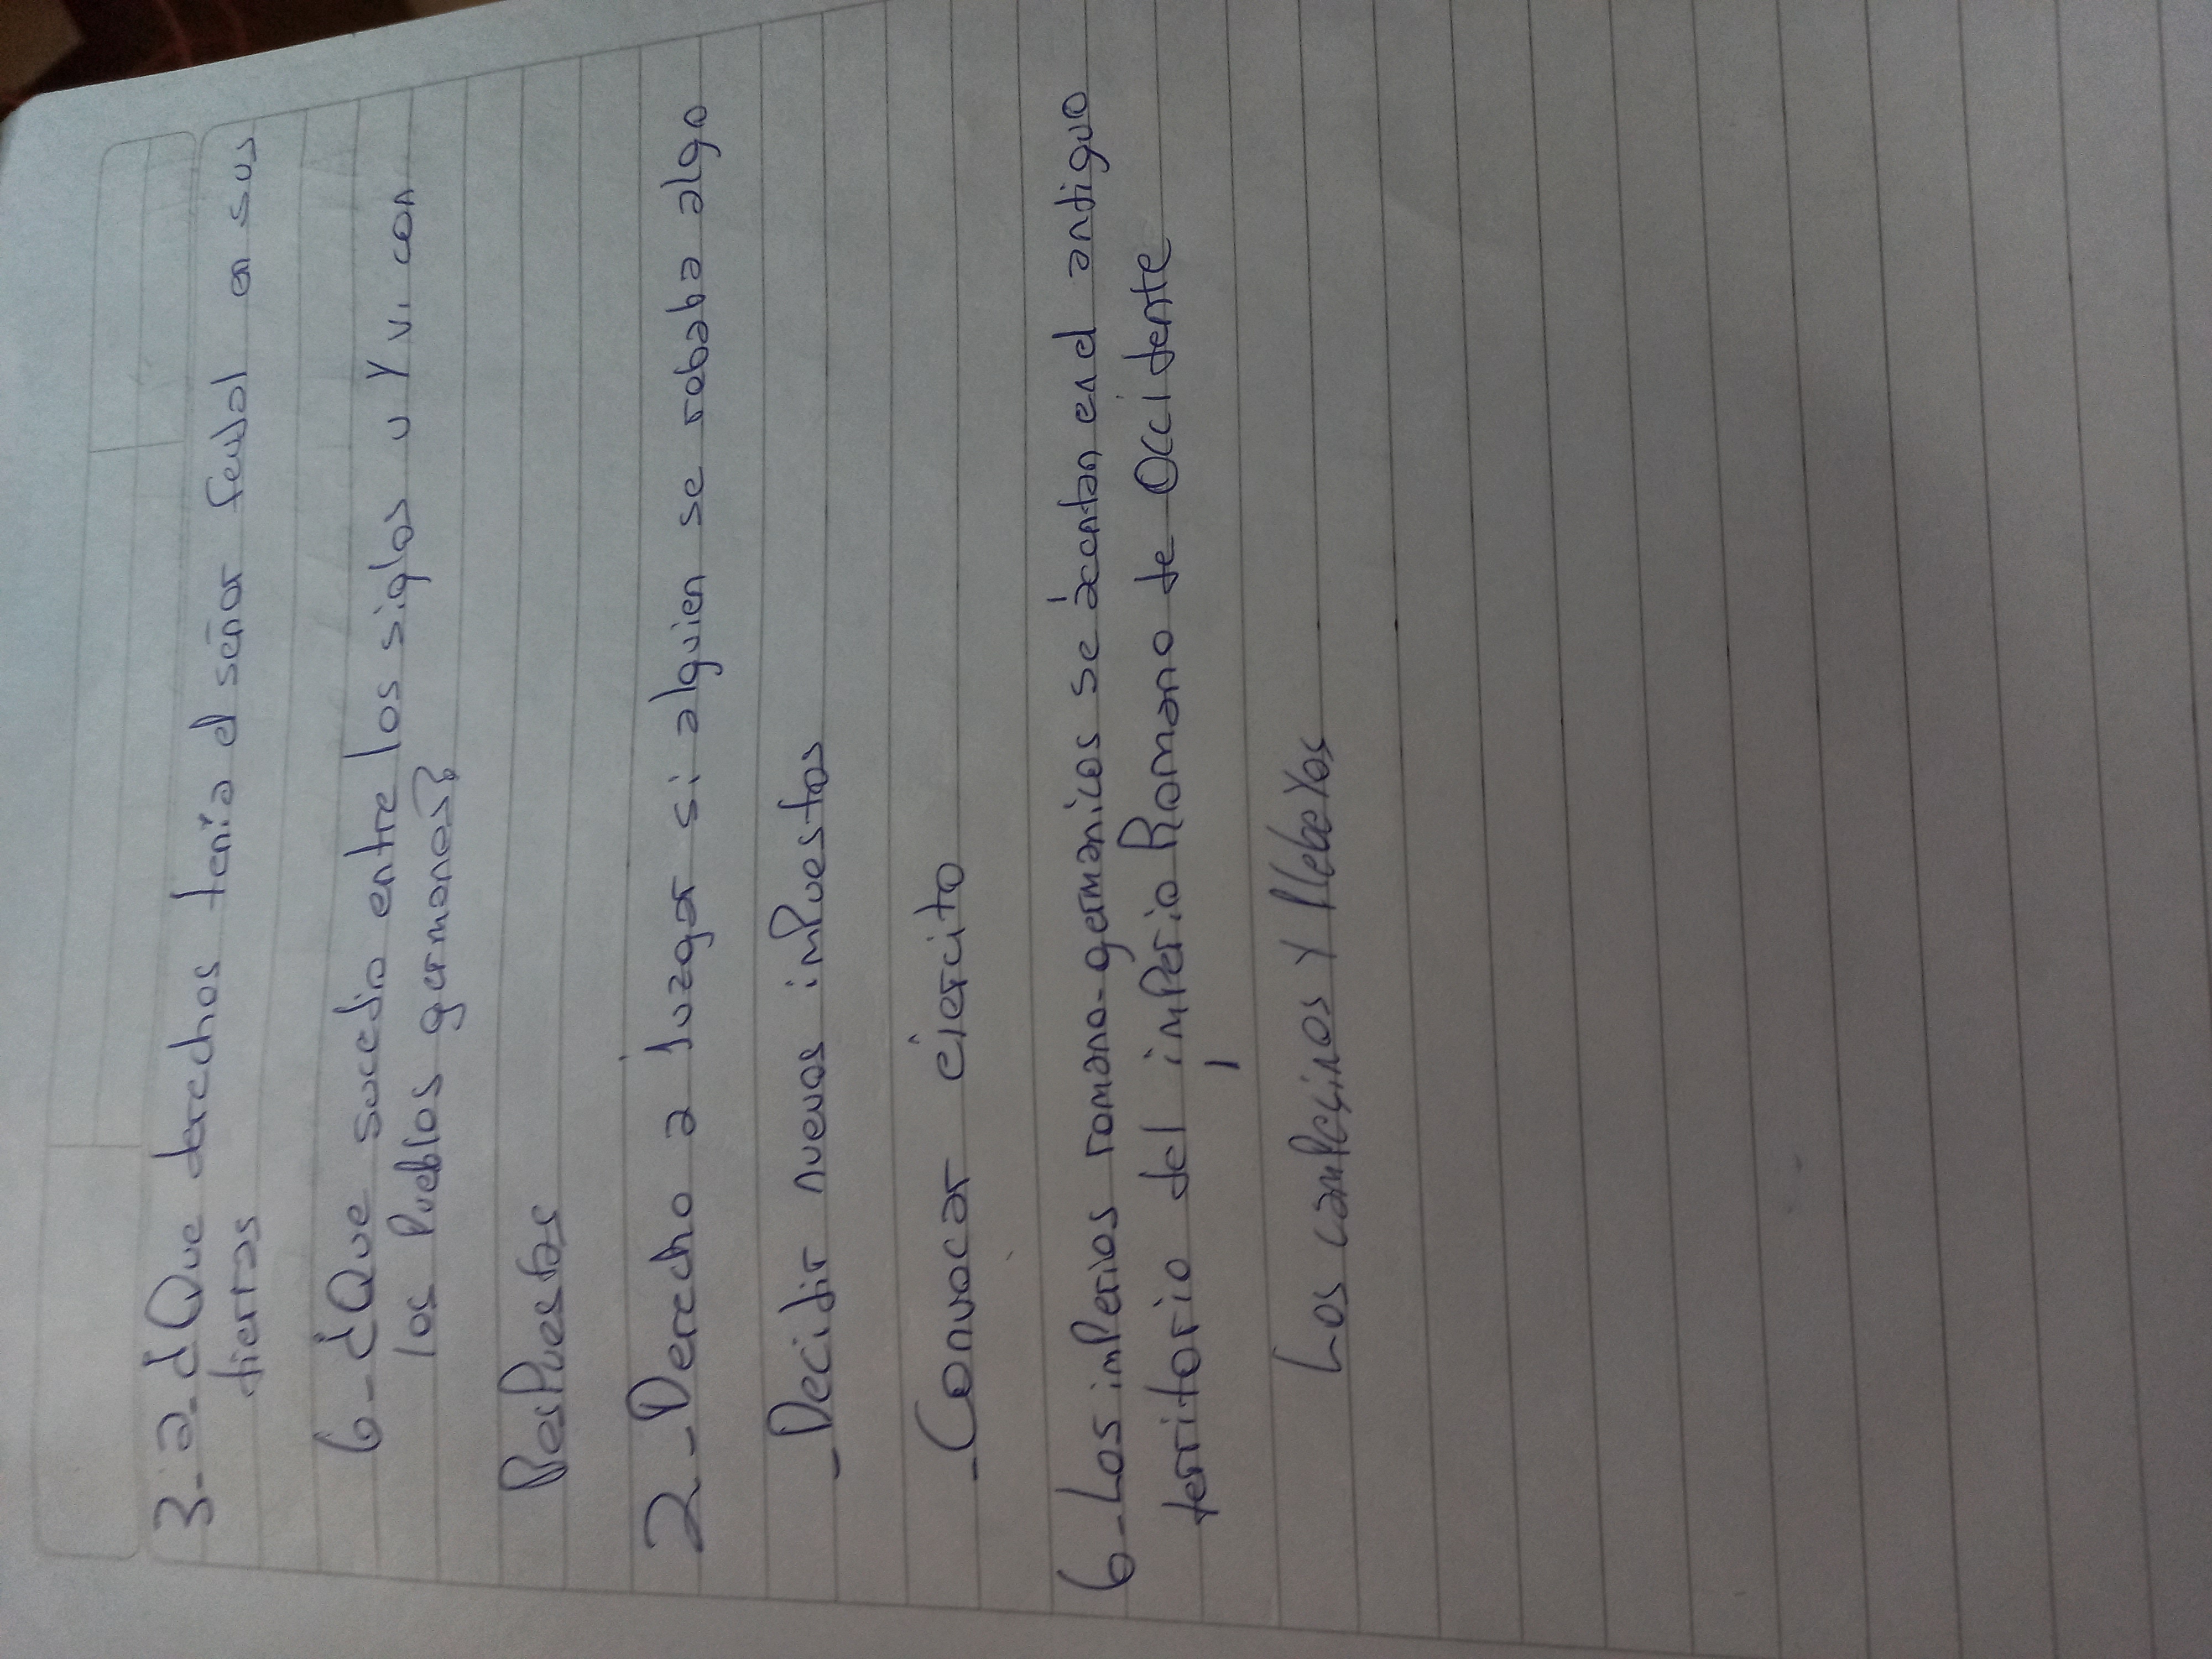 3-a-¿Que derechos tenia el señor feudal en sus
tierras
6-¿Que sucedio entre los siglos v y vi con
los Pueblos germanos?
ResPuestas
2-Derecho a Juzgar si alguien se robaba algo
-Decidir nuevos imPuestos
-Convocar ejercito
6-Los imPerios romano-germanicos se acentan en el antiguo
territorio del imPerio Romano de Occidente
Los camPecinos y Plebeyos